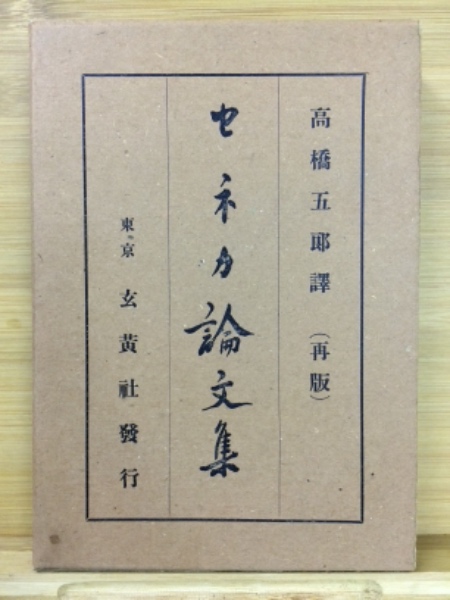 高橋五郎譯（再版）
セネカ論文集
東京 玄黄社發行